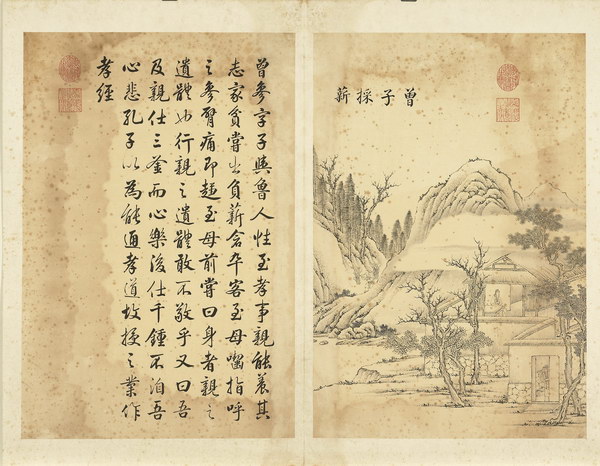 曾子採薪
曾參字子輿魯人性至孝事親能養其
志家貧嘗出負薪會卒客至母囓指呼
之參臂痛即趨至母前嘗曰身者親之
遺體也行親之遺體敢不敬乎又曰吾
及親仕三釜而心樂後仕千鍾不洎吾
心悲孔子以為能通孝道故授之業作
孝經